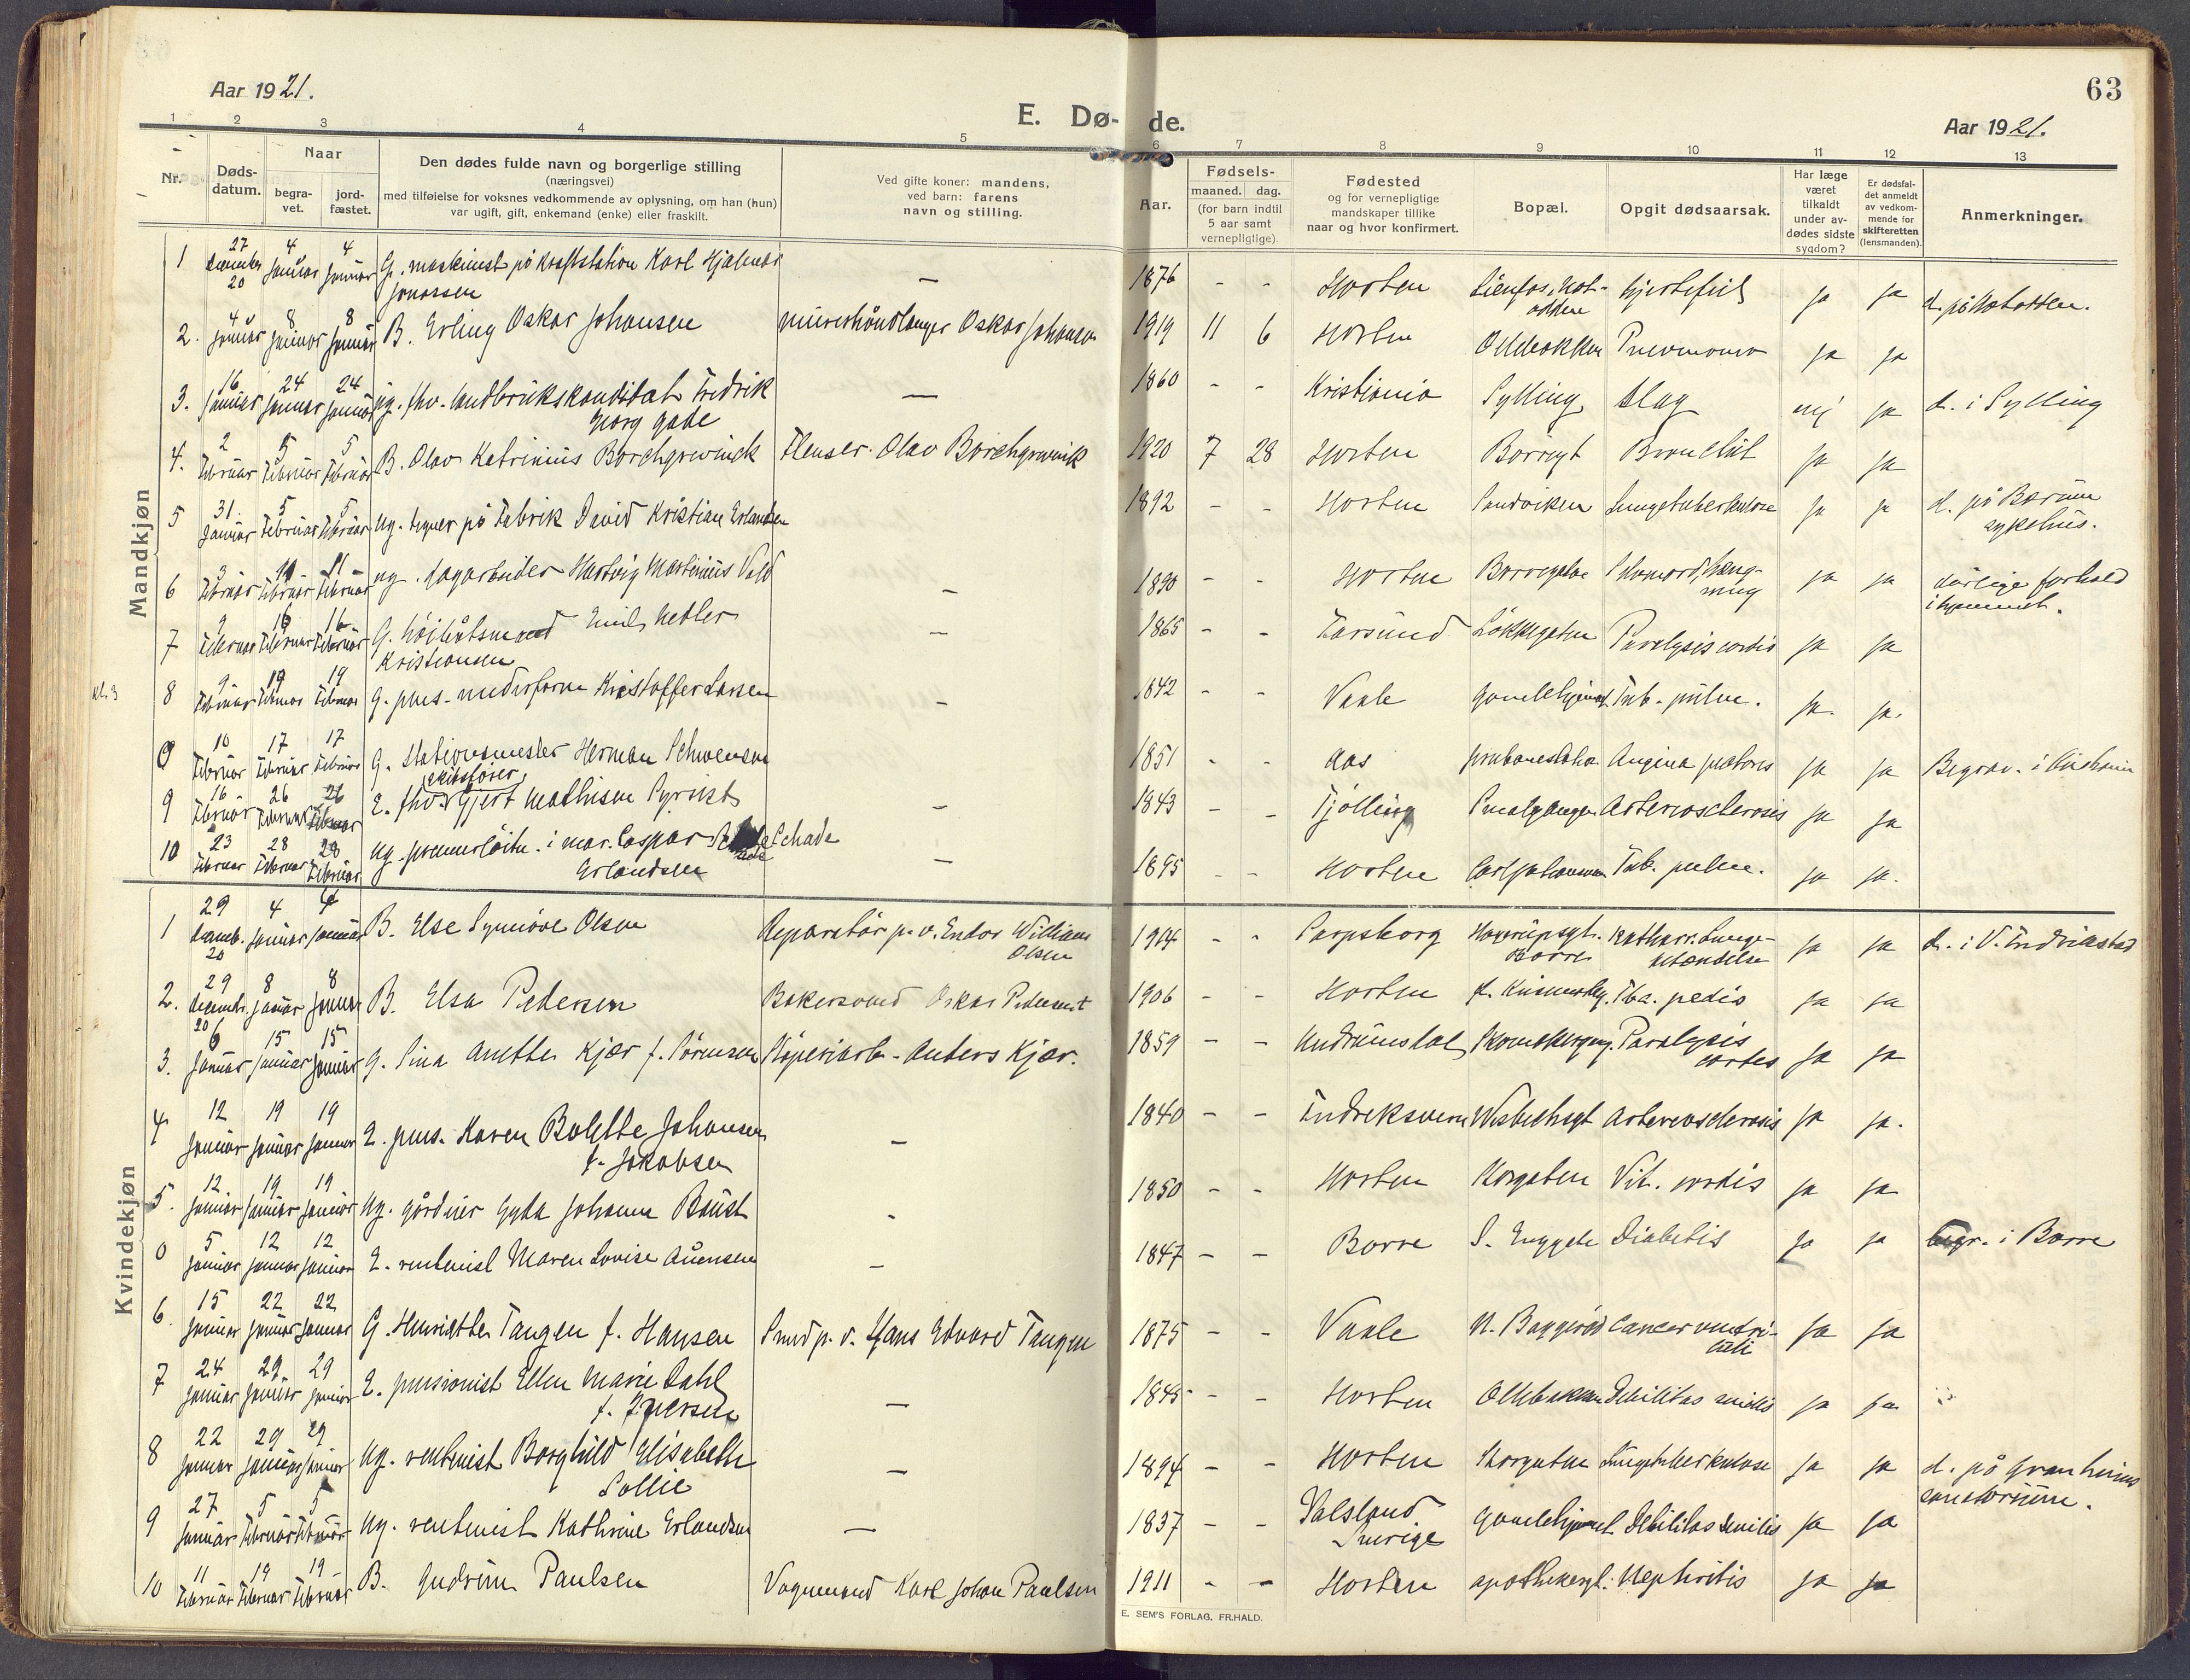 63
Aar 1921.
E. Dø- de.
Aar 1921.
1 2 3 4 5 6 7 8 9 10 11 12 13
Nr.
Døds-
datum.
Naar
begra-
vet.
jord-
fæstet.
Den dødes fulde navn og borgerlige stilling
(næringsvei)
med tilføielse for voksnes vedkommende av oplysning, om han (hun)
var ugift, gift, enkemand (enke) eller fraskilt.
Ved gifte koner: mandens,
ved barn: farens
navn og stilling.
Aar.
Fødsels-
maaned. dag.
(for barn indtil
5 aar samt
vernepligtige)
Fødested
og for vernepligtige
mandskaper tillike
naar og hvor konfirmert.
Bopæl.
Opgit dødsaarsak.
Har læge
været
tilkaldt
under av-
dødes sidste
sygdom?
Er dødsfal-
det anmeldt
av vedkom-
mende for
skifteretten
(lensmanden).
Anmerkninger.
Mandkjøn
1 27 december 20 4 januar 4 januar G. maskinist på kraftstation Karl Hjalmar
Jonassen — 1876 - - Horten Hjertefeil ja ja
2. 4 januar 8 januar 8 januar B. Erling Oskar Johansen murerhåndlanger Oskar Johansen 1919 11 6 Horten Ollebakken Pneumonia ja ja
3. 16 januar 24 januar 24 januar ug. fhv. landbrukskandidat Fredrik
Georg Gade — 1860 - - Kristiania Sylling Slag nei ja d. i Sylling
4. 2 februar 5 februar 5 februar B. Olav Katrinius Borchgrevinck Flenser Olav Borchgrevink 1920 7 28 Horten Borregt ja ja
5 31. januar 5 februar 5 februar ug. tegner på Fabrik David Kristian Erlandsen 1892 - - Horten Sandviken Lungetuberkulose ja ja d. på Bærum
sykehus.
6 februar 11 februar 11 februar ug. fagarbeider Hartvig Martinius Vold — 1890 - - Horten Borregaten Selvmord, hæng-
ning ja ja dårlige forhold
i hjemmet.
7 9 februar 16 februar 16 februar G. høibåtsmand Emil
Kristiansen — 1865 - - Farsund Løkkegaten Paralysis cordis ja ja
8 9 februar 19 februar 19 februar G. pens. Kristoffer Larsen — 1842 - - Vaale Gamlehjemmet Tub. pulm. ja. ja.
0 10 februar 17 februar 17 februar G. Stationsmester Herman Schwensen 1851 - - Aas Jernbanestation Angina pectoris ja ja
9 16 februar 26 februar 26 februar E. fhv. skibsfører Gjert Mathisen Syrrist — 1843 - - Tjølling Smalgangen Arteriosclerosis ja ja
10 23 februar 28 februar 28 februar ug. premierløitn. i mar. Caspar Schade
Erlandsen — 1895 - - Horten Tub. pulm. ja ja.
Kvindekjøn
1 29 decemb. 20 4 januar 4 januar B. Else Synnøve Olsen Reparatør p. v. Endor William
Olsen 1904 - - Sarpsborg Haverupsgt.
Borre Katharr. lunge-
betændelse ja ja d. i V. Fredrikstad
2. 29 decembr. 20 8 januar 8 januar B. Elsa Pedersen Bakersvend Oskar Pedersen 1906 - - Horten Tba. pedis ja ja
3. 6 januar 15 januar 15 januar G. Sina Anette Kjær f. Sørensen Støperiarb. Anders Kjær. 1859 - - Undrumsdal Skomakergang. Paralysis
cordis ja ja
4 12 januar 19 januar 19 januar E. pens. Karen Bolette Johansen
f. Jakobsen — 1840 - - Fredriksvern Wisbechsgt Arteriosclerosis ja ja.
5. 12 januar 19 januar 19 januar ug. gårdeier Gyda Johanne Baust - 1850 - - Horten Storgaten Vit. cordis ja ja
0 5 januar 12 januar 12 januar E. rentenist Maren Lovise Auensen — 1847 - - Borre S. Enggate Diabetis ja ja begr. i Borre
6. 15 januar 22 januar 22 januar G. Henriette Tangen f. Hansen Smed p. v. Hans Edvard Tangen 1875 - - Vaale N. Baggerød Cancer ventri-
culi ja ja
7 24 januar 29 januar 29 januar E. pensionist Ellen Marie Dahl
f. Iversen — 1845 - - Horten Ollebakken Debilitas senilis ja ja
8 22 januar 29 januar 29 januar ug. rentenist Borghild Elisabeth
Sollie — 1894 - - Horten Storgaten Lungetuberkulose ja ja d. på Granheims
sanatorium.
9 27 januar 5 februar 5 februar ug. rentenist Kathrine Erlandsen — 1837 - - Dalsland
Sverige Gamlehjemmet Debilitas senilis ja ja
10 11 februar 19 februar 19 februar B. Gudrun Paulsen Vognmand Karl Johan Paulsen 1911 - - Horten Apothekergt. Nephritis ja ja
E. SEM'S FORLAG, FR.HALD.